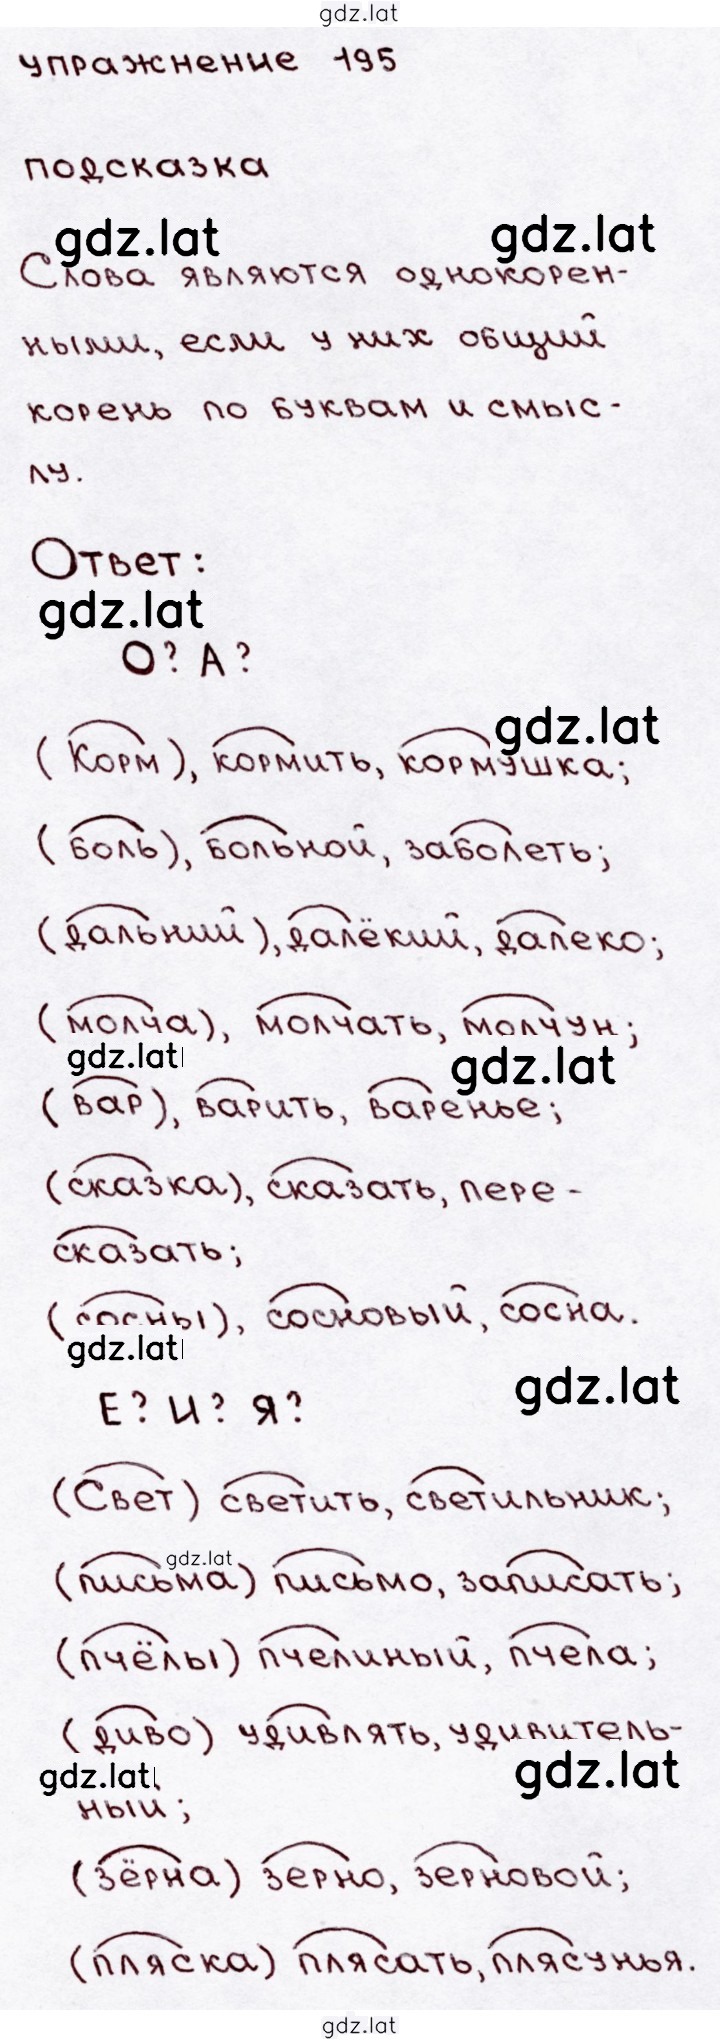 gdz.lat
упражнение 195
подсказка
gdz.lat gdz.lat
Слова являются однокорен-
ными, если у них общий
корень по буквам и смыс-
лу.
Ответ:
gdz.lat
О? А?
gdz.lat
(Корм), кормить, кормушка;
(боль), больной, заболеть;
(дальний), далёкий, далеко;
(молча), молчать, молчун;
gdz.lat gdz.lat
(вар), варить, варенье;
(сказка), сказать, пере-
сказать;
(сосны), сосновый, сосна.
gdz.lat
gdz.lat
Е? И? Я?
(Свет) светить, светильник;
gdz.lat
(письма) письмо, записать;
(пчёлы) пчелиный, пчела;
(диво) удивлять, удивитель-
gdz.lat gdz.lat
ный;
(зёрна) зерно, зерновой;
(пляска) плясать, плясунья.
gdz.lat